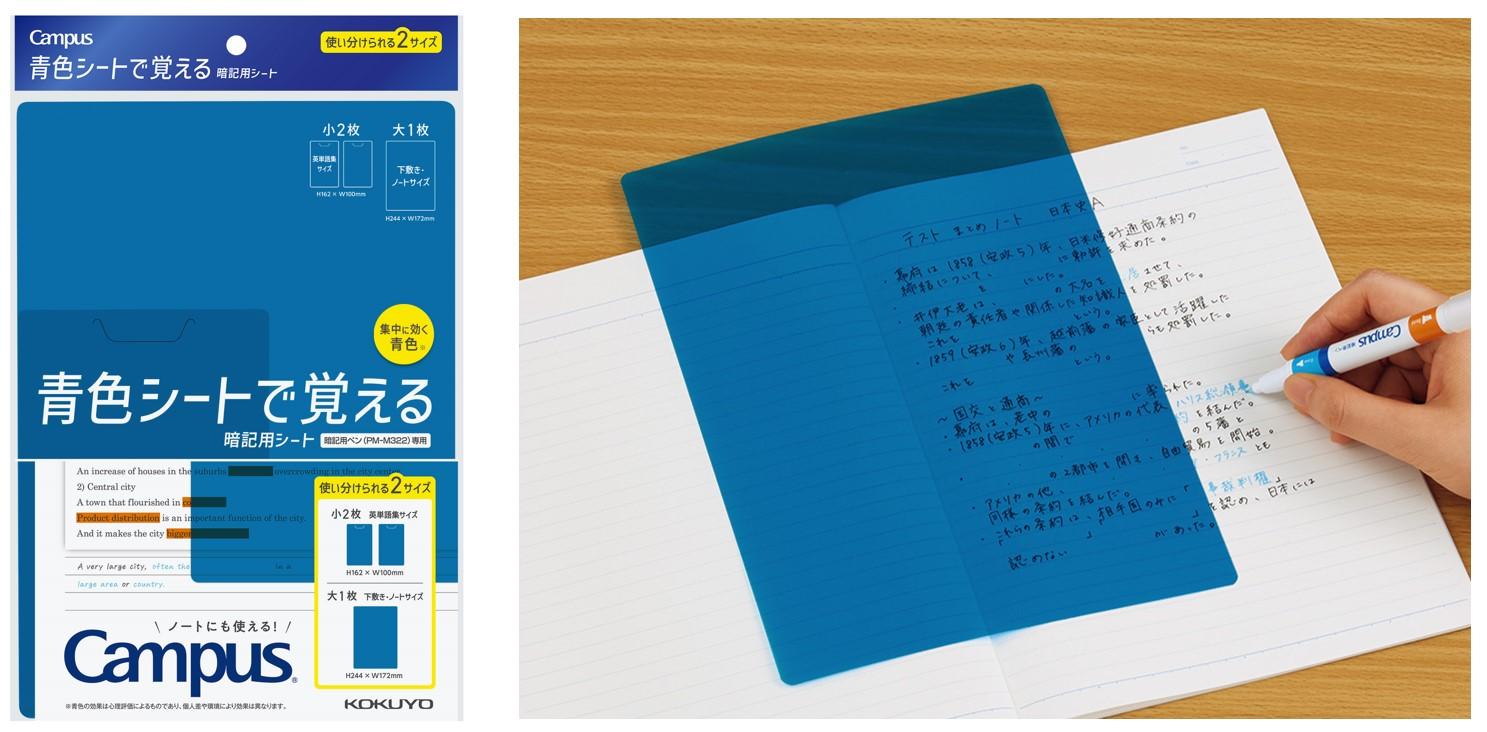 Campus
青色シートで覚える 暗記用シート
使い分けられる2サイズ
小2枚
大1枚
英単語集
サイズ
下敷き・
ノートサイズ
H162 × W100mm
H244 × W172mm
集中に効く
青色※
青色シートで覚える
暗記用シート 暗記用ペン(PM-M322)専用
An increase of houses in the suburbs overcrowding in the city center.
2) Central city
A town that flourished in
Product distribution is an important function of the city.
And it makes the city bigger
A very large city, often the in a
large area or country.
使い分けられる2サイズ
小2枚 英単語集サイズ
H162 × W100mm
大1枚 下敷き・ノートサイズ
H244 × W172mm
\ ノートにも使える! /
Campus®
※青色の効果は心理評価によるものであり、個人差や環境により効果は異なります。
KOKUYO
テスト まとめノート 日本史A
・幕府は 1858 (安政5) 年、日米修好通商条約の
締結について、 に勅許を求めた。
・井伊大老は、 の大名を させて、
朝廷の責任者や関係した知識人を処罰した。
これを という。
・1859 (安政6) 年、越前藩の 家臣として活躍した
や長州藩の らも処罰した。
これを という。
〜国交と通商〜
・幕府は、老中の に率られた。
・1858 (安政5) 年に、アメリカの代表 ハリス総領事
の間で 約 を結んだ。
の5港と
の2都市を開き、自由貿易を開始。
・アメリカの他、 ・フランス とも
同様の条約を結んだ。
・これらの条約は、相手国のみに「 事裁判権」
を認め、日本には
認めない が あった。
Campus